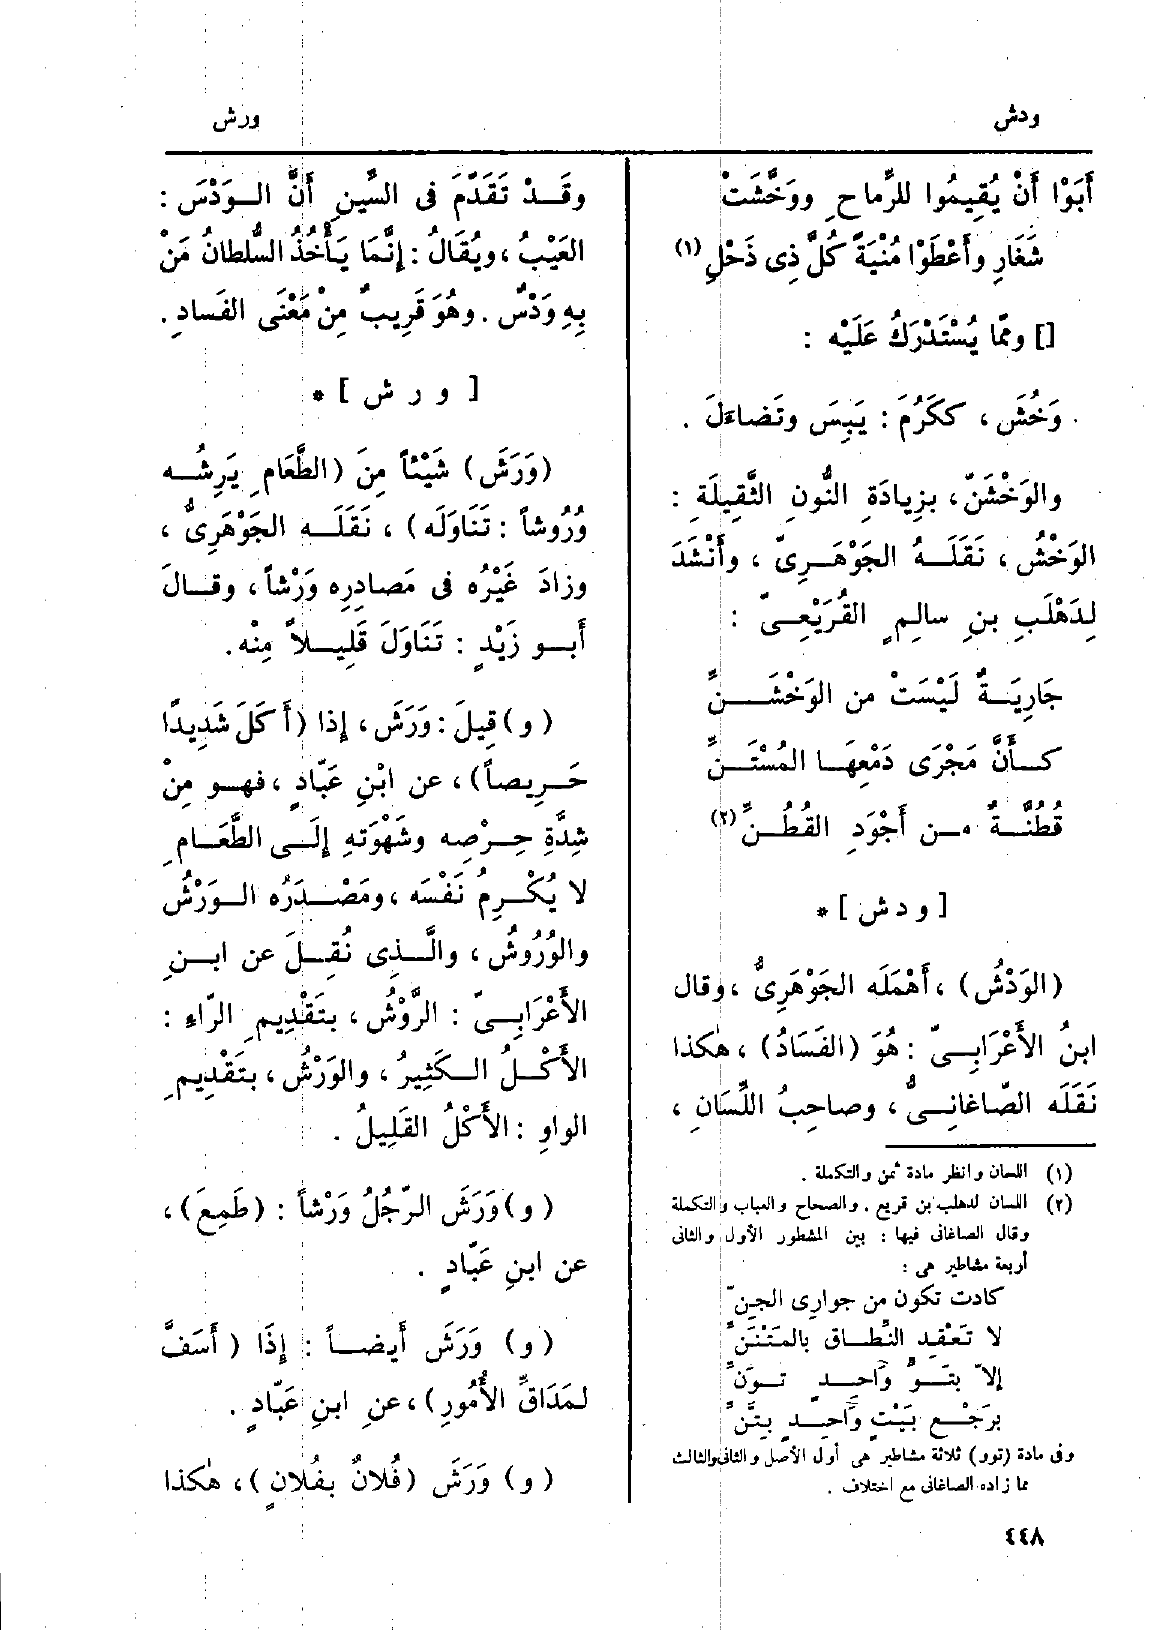 ودش
ورش
أَبَوْا أَنْ يُقِيمُوا للرِّماحِ ووَخَّشَتْ
شَغَارِ وأَعْطَوْا مُنْيَةً كُلَّ ذِى ذَحْلِ (١)
[] وممّا يُسْتَدْرَكُ عَلَيْه :
وَخُشَ ، ككَرُمَ : يَبِسَ وتَضاءَلَ .
والوَخْشَنّ ، بزِيادَةِ النُّونِ الثَّقِيلَةِ :
الوَخْشُ ، نَقَلَـهُ الجَوْهَرِىّ ، وأَنْشَدَ
لِدَهْلَبِ بنِ سالِمٍ القُرَيْعِىّ :
جَارِيَةٌ لَيْسَتْ من الوَخْشَـنِّ
كـأَنَّ مَجْرَى دَمْعِهَـا المُسْتَـنِّ
قُطُنَّةٌ مـن أَجْوَدِ القُطُنِّ (٢)
[ و د ش ] *
(الوَدْشُ) ، أَهْمَلَه الجَوْهَرِىُّ ، وقال
ابنُ الأَعْرَابِـىّ : هُوَ (الفَسَادُ) ، هٰكذا
نَقَلَه الصّاغانِـىُّ ، وصاحِبُ اللِّسَانِ ،
(١) اللسان وانظر مادة ثمن والتكملة .
(٢) اللسان لدهلب بن قريع . والصحاح والعباب والتكملة
وقال الصاغانى فيها : بين المشطور الأول والثانى
أربعة مشاطير هى :
كادت تكون من جوارى الجِنّ
لا تَعْقِد النِّطَـاق بالمَتْنَنِّ
إلاّ بتَـوٍّ وَاحِـدٍ تَـوَنِّ
بِرَجْـعِ بَيْتٍ وَاحِـدٍ بِتَنِّ
وفى مادة (توو) ثلاثة مشاطير هى أول الأصل والثانى والثالث
مما زاده الصاغانى مع اختلاف .
وقَـدْ تَقَدَّمَ فى السِّينِ أَنَّ الـوَدْسَ :
العَيْبُ ، ويُقَالُ : إِنَّمَا يَـأْخُذُ السُّلطانُ مَنْ
بِهِ وَدْسٌ . وهُوَ قَرِيبٌ مِنْ مَعْنَى الفَسادِ .
[ و ر ش ] *
(وَرَشَ) شَيْئاً مِنَ (الطَّعَامِ يَرِشُـه
وُرُوشاً : تَنَاوَلَه) ، نَقَلَـه الجَوْهَرِىُّ ،
وزادَ غَيْرُه فى مَصادِرِه وَرْشاً ، وقـالَ
أَبـو زَيْدٍ : تَنَاوَلَ قَلِيـلاً مِنْه .
( و) قِيلَ : وَرَشَ ، إِذا (أَكَلَ شَدِيدًا
حَـرِيصاً) ، عن ابْنِ عَبّادٍ ، فهـو مِنْ
شِدَّةِ حِـرْصِه وشَهْوَتهِ إِلَـى الطَّعَـامِ
لا يُكْـرِمُ نَفْسَه ، ومَصْـدَرُه الـوَرْشُ
والوُرُوشُ ، والَّـذِى نُقِـلَ عن ابـنِ
الأَعْرَابِـىّ : الرَّوْشُ ، بتَقْدِيمِ الرّاءِ :
الأَكْـلُ الـكَثِيرُ ، والوَرْشُ ، بتَقْدِيمِ
الواوِ : الأَكْلُ القَلِيلُ .
( و) وَرَشَ الرّجُلُ وَرْشاً : (طَمِعَ) ،
عن ابنِ عَبّادٍ .
( و) وَرَشَ أَيضـاً : إِذَا ( أَسَفَّ
لمَدَاقِّ الأُمُورِ) ، عَنِ ابنِ عَبّادٍ .
( و) وَرَشَ (فُلانٌ بفُلانٍ) ، هٰكذا
٤٤٨